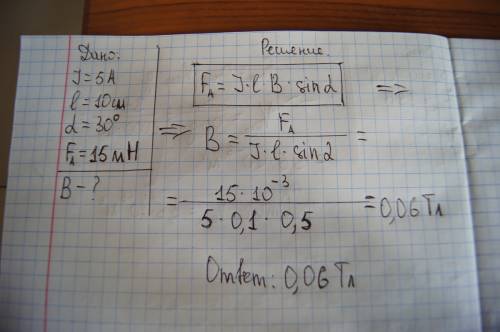 Дано:
I = 5A
l = 10см
α = 30°
Fд = 15 мН
B - ?
Решение.
Fд = I · l B · sin α =>
=> B = Fд / I · l · sin α =
= 15 · 10⁻³ / 5 · 0,1 · 0,5 = 0,06 Тл
Ответ: 0,06 Тл